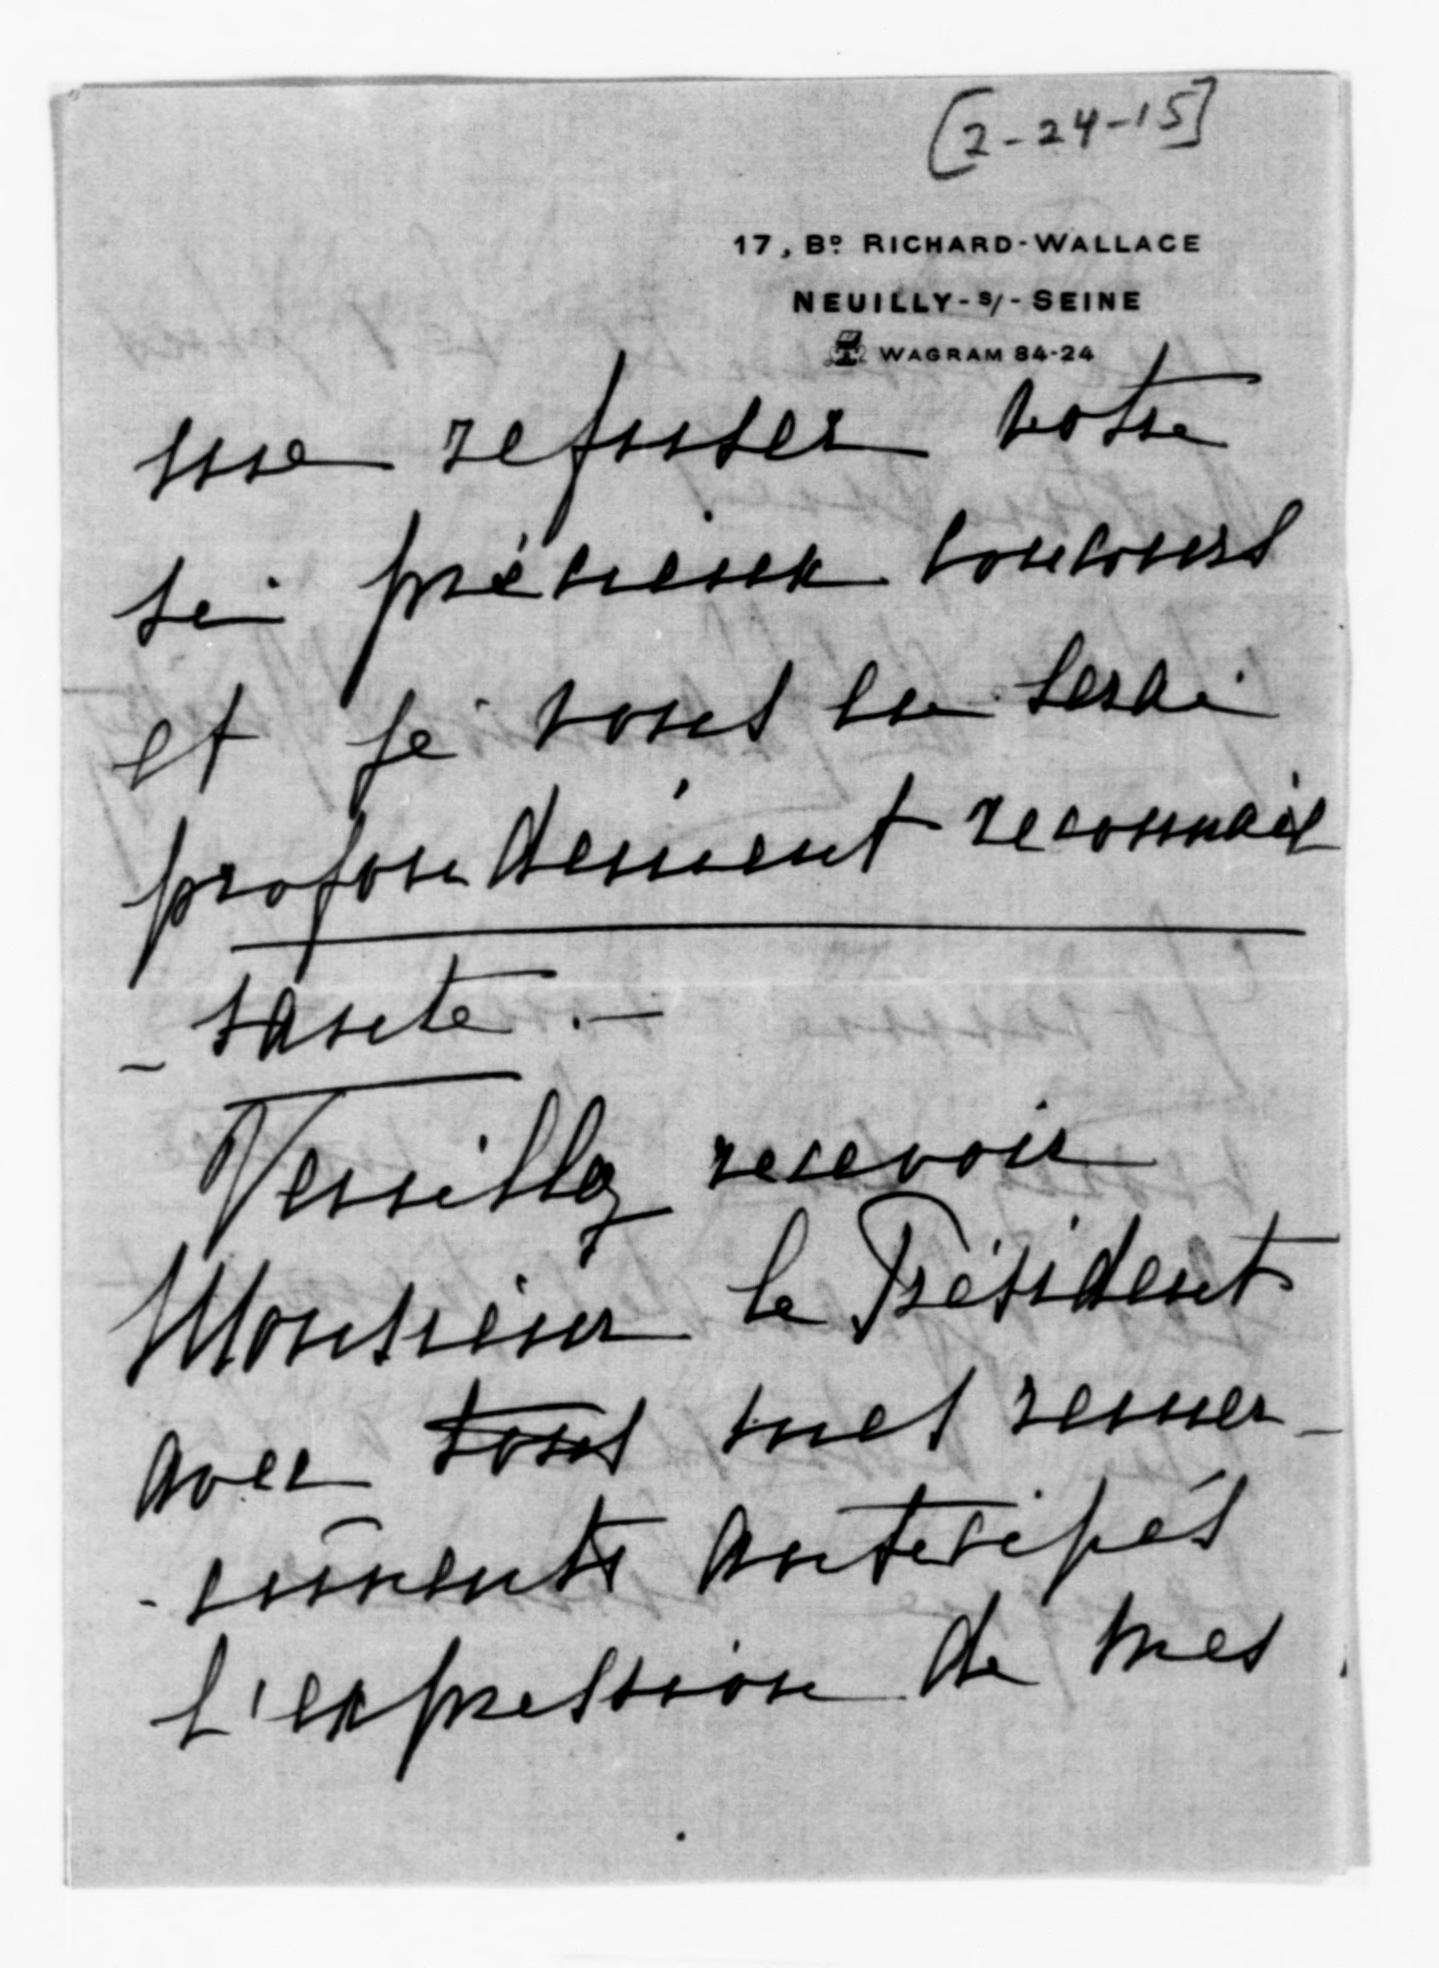 [2-24-15]
17, Bᴅ RICHARD-WALLACE
NEUILLY-S/-SEINE
WAGRAM 84-24
me refuser votre
si précieux concours
et je vous en serai
profondément reconnais
- sante . —
Veuillez recevoir
Monsieur le Président
avec tous mes remer-
- ciements anticipés
l'expression de mes